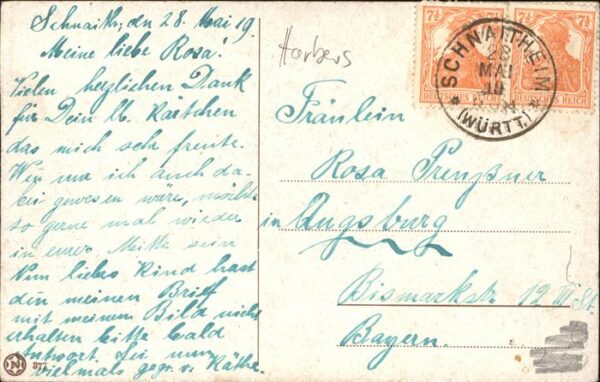 Schnaith., den 28. Mai 19.
Meine liebe Rosa!
Vielen herzlichen Dank
für Dein lb. Kärtchen
das mich sehr freute.
Wenn ich auch da-
bei gewesen wäre, möchte
so gerne mal wieder
in eurer Mitte sein
Nun liebes Kind hast
du meinen Brief
mit meinem Bild nicht
erhalten bitte bald
Antwort. Sei nun
vielmals gegr. v. Käthe.
N 377
Horbers
7½ 7½
DEUTSCHES REICH DEUTSCHES REICH
SCHNAITHEIM
28
MAI
19
(WÜRTT.)
Fräulein
Rosa Preußner
in Augsburg
Bismarkstr. 12 III St.
Bayern.